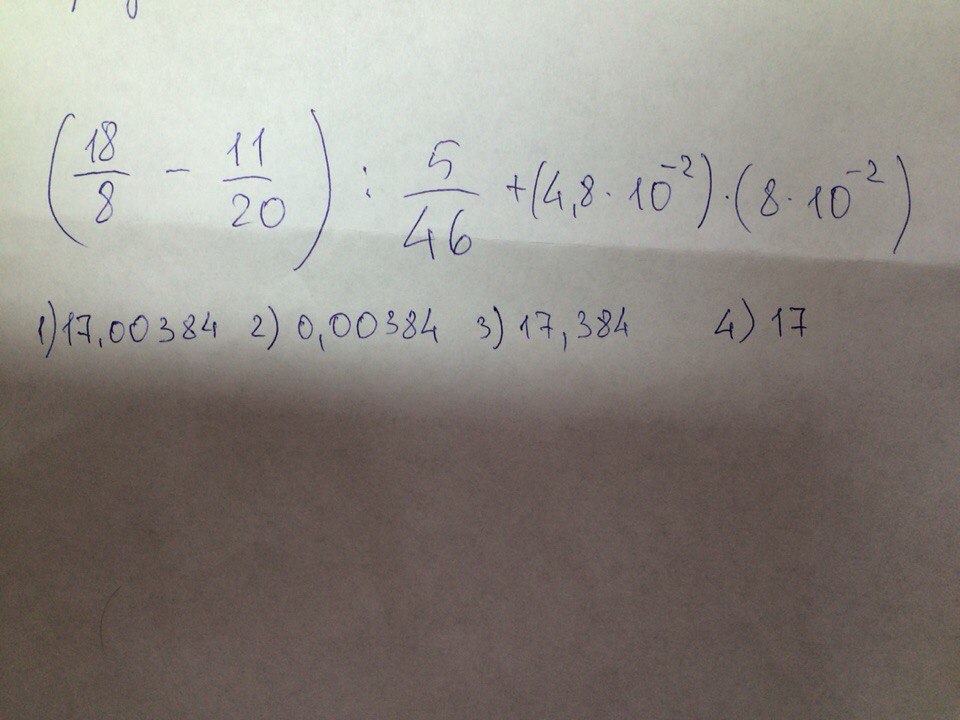 (18/8 - 11/20) : 5/46 + (4,8 · 10⁻²) · (8 · 10⁻²)
1) 17,00384 2) 0,00384 3) 17,384 4) 17